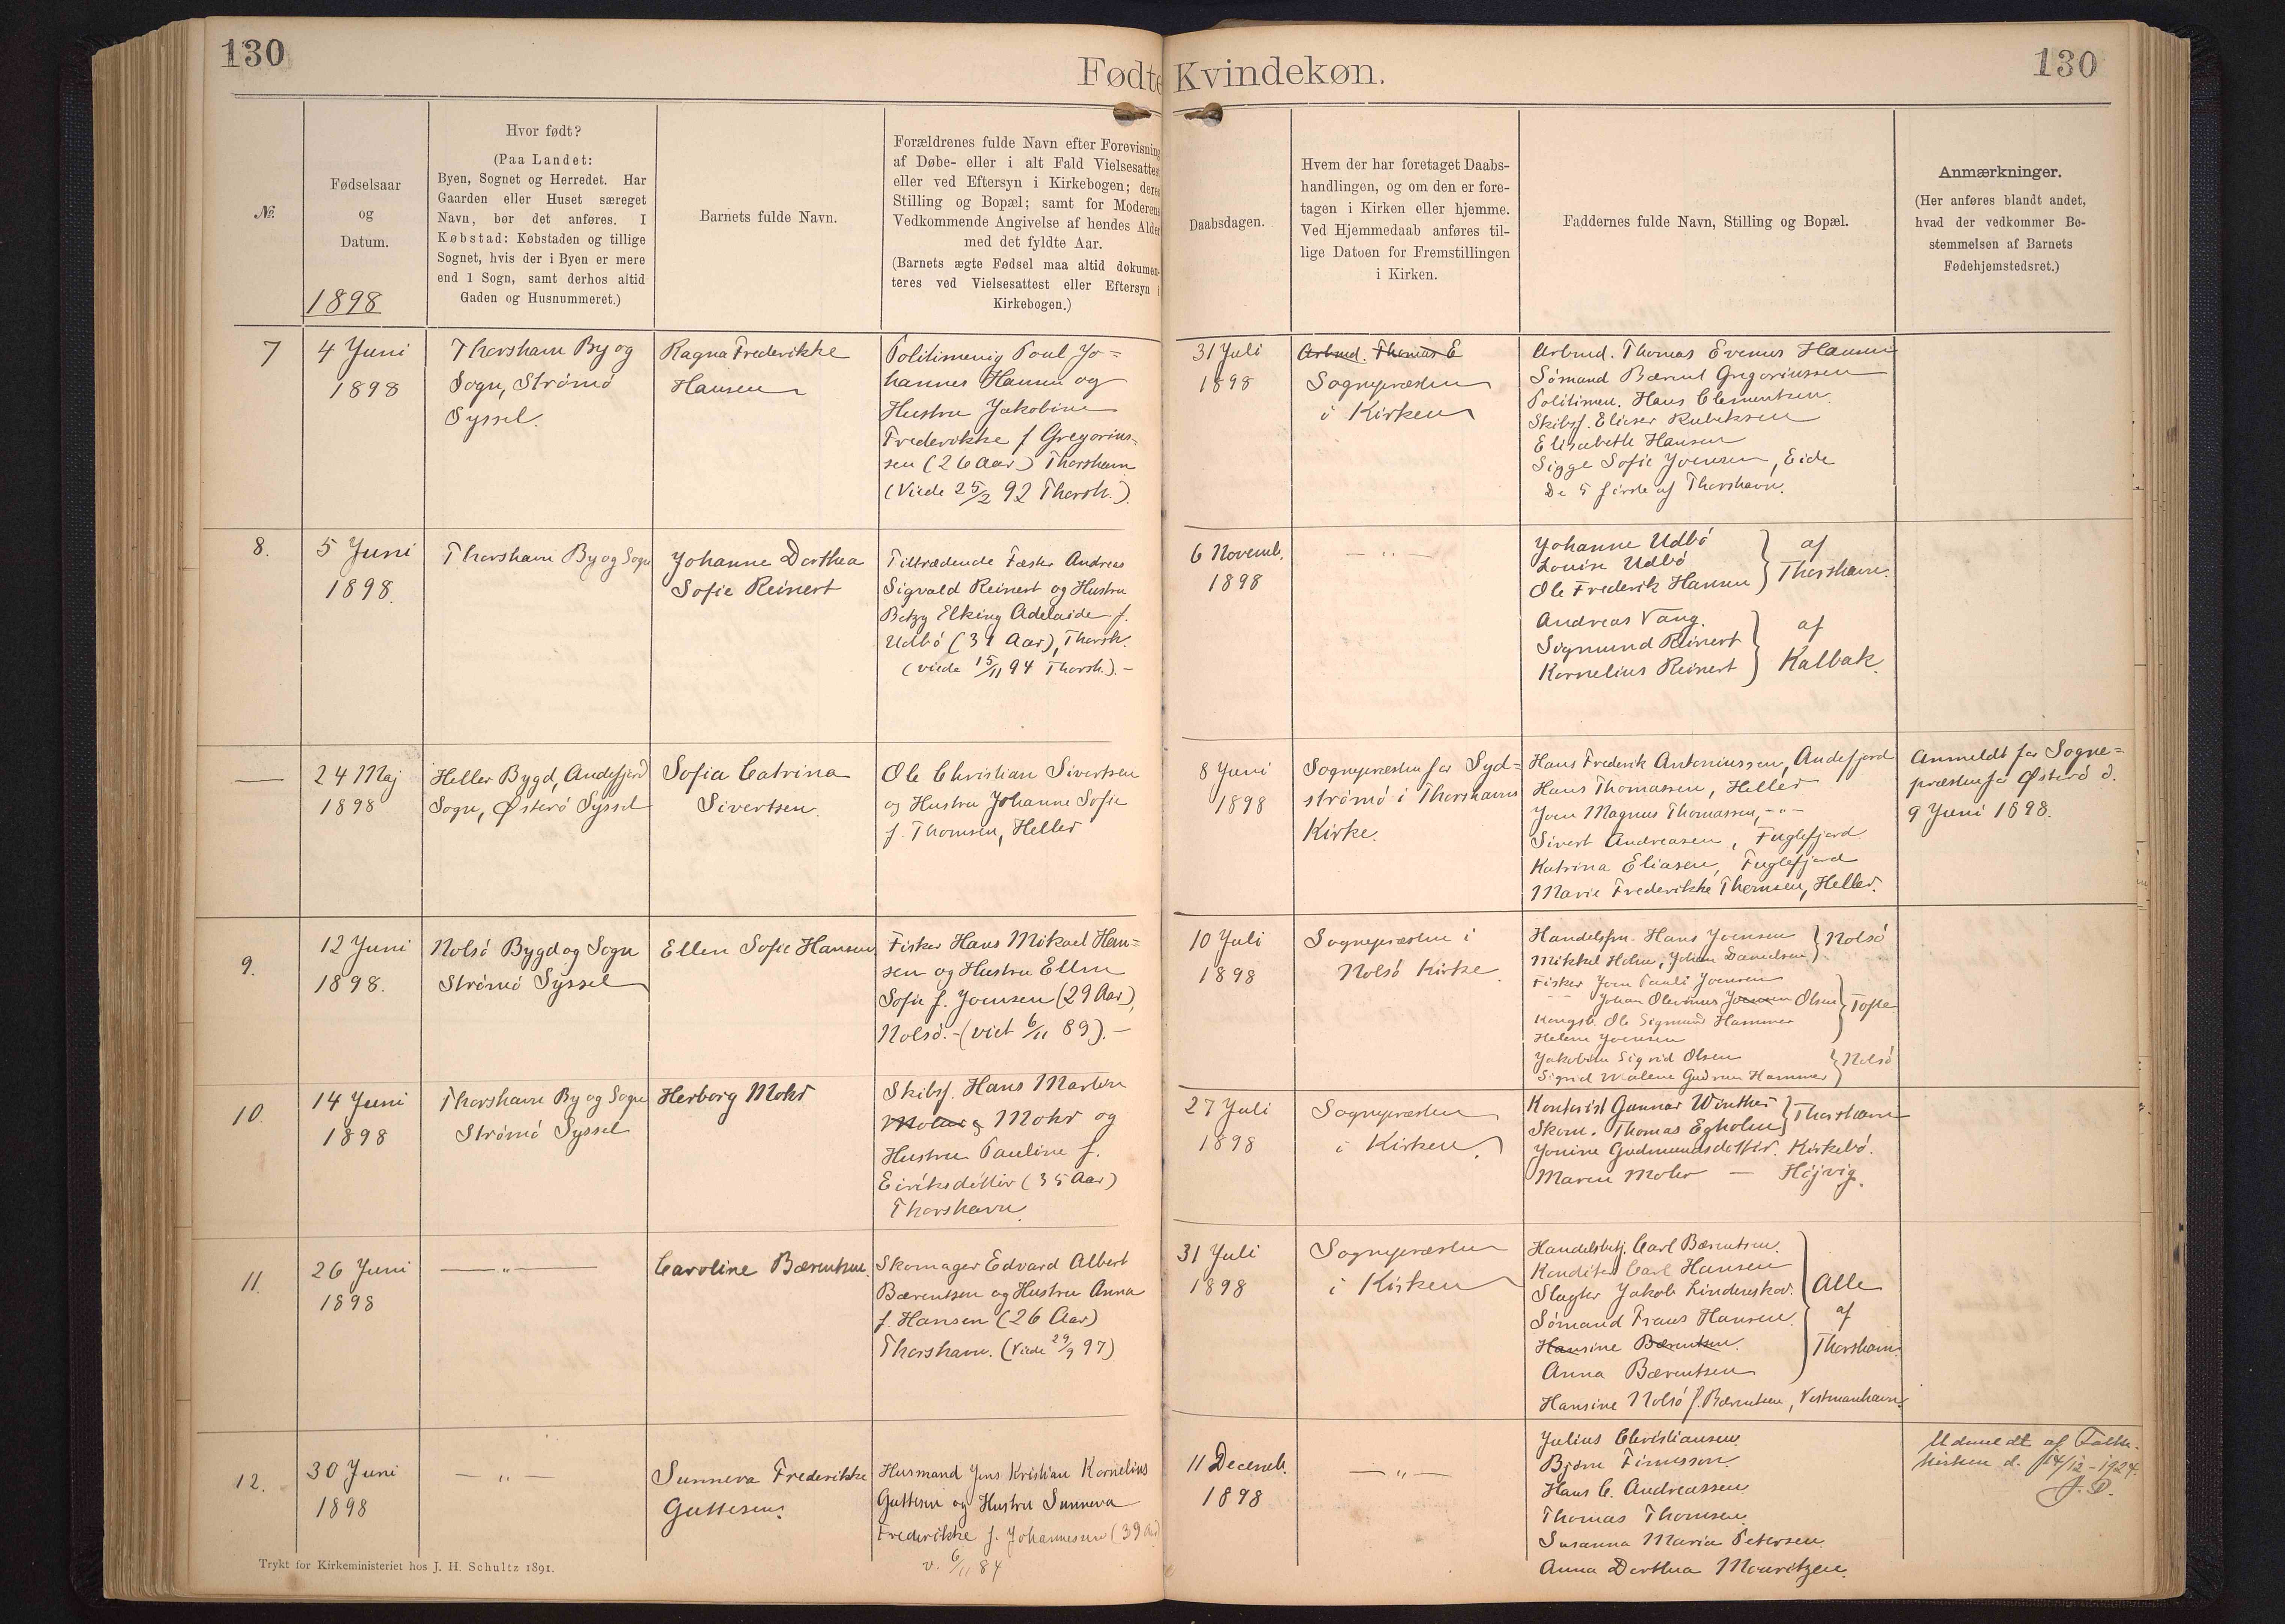 130
Fødte Kvindekøn.
130
№.
Fødselsaar
og
Datum.
1898
Hvor født?
(Paa Landet:
Byen, Sognet og Herredet. Har
Gaarden eller Huset særeget
Navn, bør det anføres. I
Købstad: Købstaden og tillige
Sognet, hvis der i Byen er mere
end 1 Sogn, samt derhos altid
Gaden og Husnummeret.)
Barnets fulde Navn.
Forældrenes fulde Navn efter Forevisning
af Døbe- eller i alt Fald Vielsesattest
eller ved Eftersyn i Kirkebogen; deres
Stilling og Bopæl; samt for Moderens
Vedkommende Angivelse af hendes Alder
med det fyldte Aar.
(Barnets ægte Fødsel maa altid dokumen-
teres ved Vielsesattest eller Eftersyn i
Kirkebogen.)
Daabsdagen.
Hvem der har foretaget Daabs-
handlingen, og om den er fore-
tagen i Kirken eller hjemme.
Ved Hjemmedaab anføres til-
lige Datoen for Fremstillingen
i Kirken.
Faddernes fulde Navn, Stilling og Bopæl.
Anmærkninger.
(Her anføres blandt andet,
hvad der vedkommer Be-
stemmelsen af Barnets
Fødehjemstedsret.)
7
4 Juni
1898
Thorshavn By og
Sogn, Strømø
Syssel.
Ragna Frederikke
Hansen
Politimenig Poul Jo=
hannes Hansen og
Hustru Jakobine
Frederikke f Gregorius=
sen (26 Aar) Thorshavn
(Viede 25/2 92 Thorsh.).
31 Juli
1898
Arbmd. Thomas E
Sognepræsten
i Kirken
Arbmd. Thomas Evenus Hansen
Sømand Bærent Gregoriussen
Politimen. Hans Clementsen
Skibsf. Elieser Rubeksen
Elisabeth Hansen
Sigge Sofie Joensen, Eide
De 5 første af Thorshavn.
8.
5 Juni
1898.
Thorshavn By og Sogn
Johanne Dorthea
Sofie Reinert
Tiltrædende Fæster Andreas
Sigvald Reinert og Hustru
Betzy Elking Adelaide f.
Udbø (31 Aar), Thorsh.
(viede 15/11 94 Thorsh.).-
6 Novemb.
1898
— " —
Johanne Udbø
Louise Udbø
Ole Frederik Hansen
af
Thorshavn.
Andreas Vang.
Sigmund Reinert
Kornelius Reinert
af
Kalbak.
—
24 Maj
1898
Heller Bygd, Andefjord
Sogn, Østerø Syssel
Sofia Catrina
Sivertsen.
Ole Christian Sivertsen
og Hustru Johanne Sofie
f. Thomsen, Heller
8 Juni
1898
Sognepræsten for Syd=
strømø i Thorshavns
Kirke.
Hans Frederik Antoniussen, Andefjord
Hans Thomassen, Heller
Joen Magnus Thomassen, -"-
Sivert Andreasen, Fuglefjord.
Katrina Eliasen, Fuglefjord
Marie Frederikke Thomsen, Heller.
Anmeldt for Sogne=
præsten for Østerø d.
9 Juni 1898.
9.
12 Juni
1898.
Nolsø Bygd og Sogn
Strømø Syssel
Ellen Sofie Hansen
Fisker Hans Mikael Han=
sen og Hustru Ellen
Sofie f. Joensen (29 Aar),
Nolsø.-(viet 6/11 89).-
10 Juli
1898
Sognepræsten i
Nolsø Kirke.
Handelsfm. Hans Joensen
Mikkel Holm, Johan Danielsen
Nolsø
Fisker Joen Pauli Joensen
Johan Olevinus Joensen Olsen
Kongsb. Ole Sigmund Hammer
Helene Joensen
Tofte
Jakobine Sigrid Olsen
Sigrid Walene Gudrun Hammer
Nolsø
10.
14 Juni
1898
Thorshavn By og Sogn
Strømø Syssel
Herborg Mohr
Skibsf. Hans Marten
Mohr og Mohr og
Hustru Pauline f.
Eiriksdóttir (35 Aar)
Thorshavn
27 Juli
1898
Sognepræsten
i Kirken.
Kontorist Gunnar Winther
Skom. Thomas Egholm
Thorshavn
Jonine Gudmundsdottir. Kirkebø.
Maren Mohr — Højvig.
11.
26 Juni
1898
— " —
Caroline Bærentsen.
Skomager Edvard Albert
Bærentsen og Hustru Anna
f. Hansen (26 Aar)
Thorshavn. (Viede 29/9 97)
31 Juli
1898
Sognepræsten
i Kirken
Handelsbetj. Carl Bærentsen.
Konditor Carl Hansen
Slagter Jakob Lindenskov.
Sømand Frans Hansen.
Hansine Bærentsen.
Anna Bærentsen
Alle
af
Thorshavn.
Hansine Nolsø f. Bærentsen, Vestmanhavn.
12.
30 Juni
1898
— " —
Sunneva Frederikke
Guttesen.
Husmand Jens Kristian Kornelius
Guttesen og Hustru Sunneva
Frederikke f. Johannesen (39 Aar)
v. 6/11 84
11 Decemb.
1898
— " —
Julius Christiansen.
Bjóne Finnsson.
Hans C. Andreassen
Thomas Thomsen.
Susanna Maria Petersen.
Anna Dorthea Mouritzen.
Udmeldt af Folke-
kirken d. 14/12-1924.
Trykt for Kirkeministeriet hos J. H. Schultz 1891.